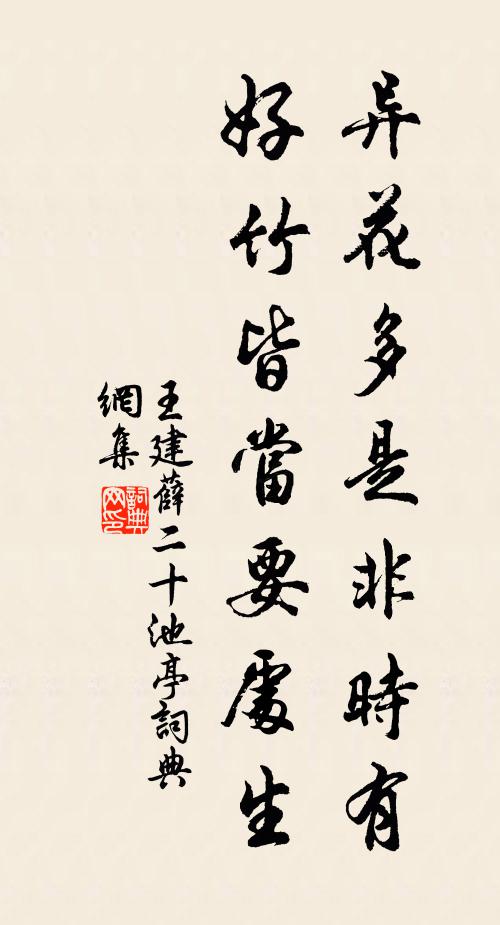 异花多是非時有
好竹皆當要處生
王建薛二十池亭詞典
網集
詞典
网印